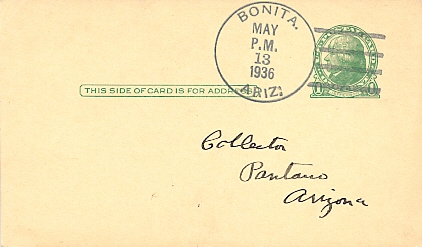 BONITA.
MAY
P.M.
13
1936
ARIZ.
THIS SIDE OF CARD IS FOR ADDRESS
Collector
Pantano
Arizona